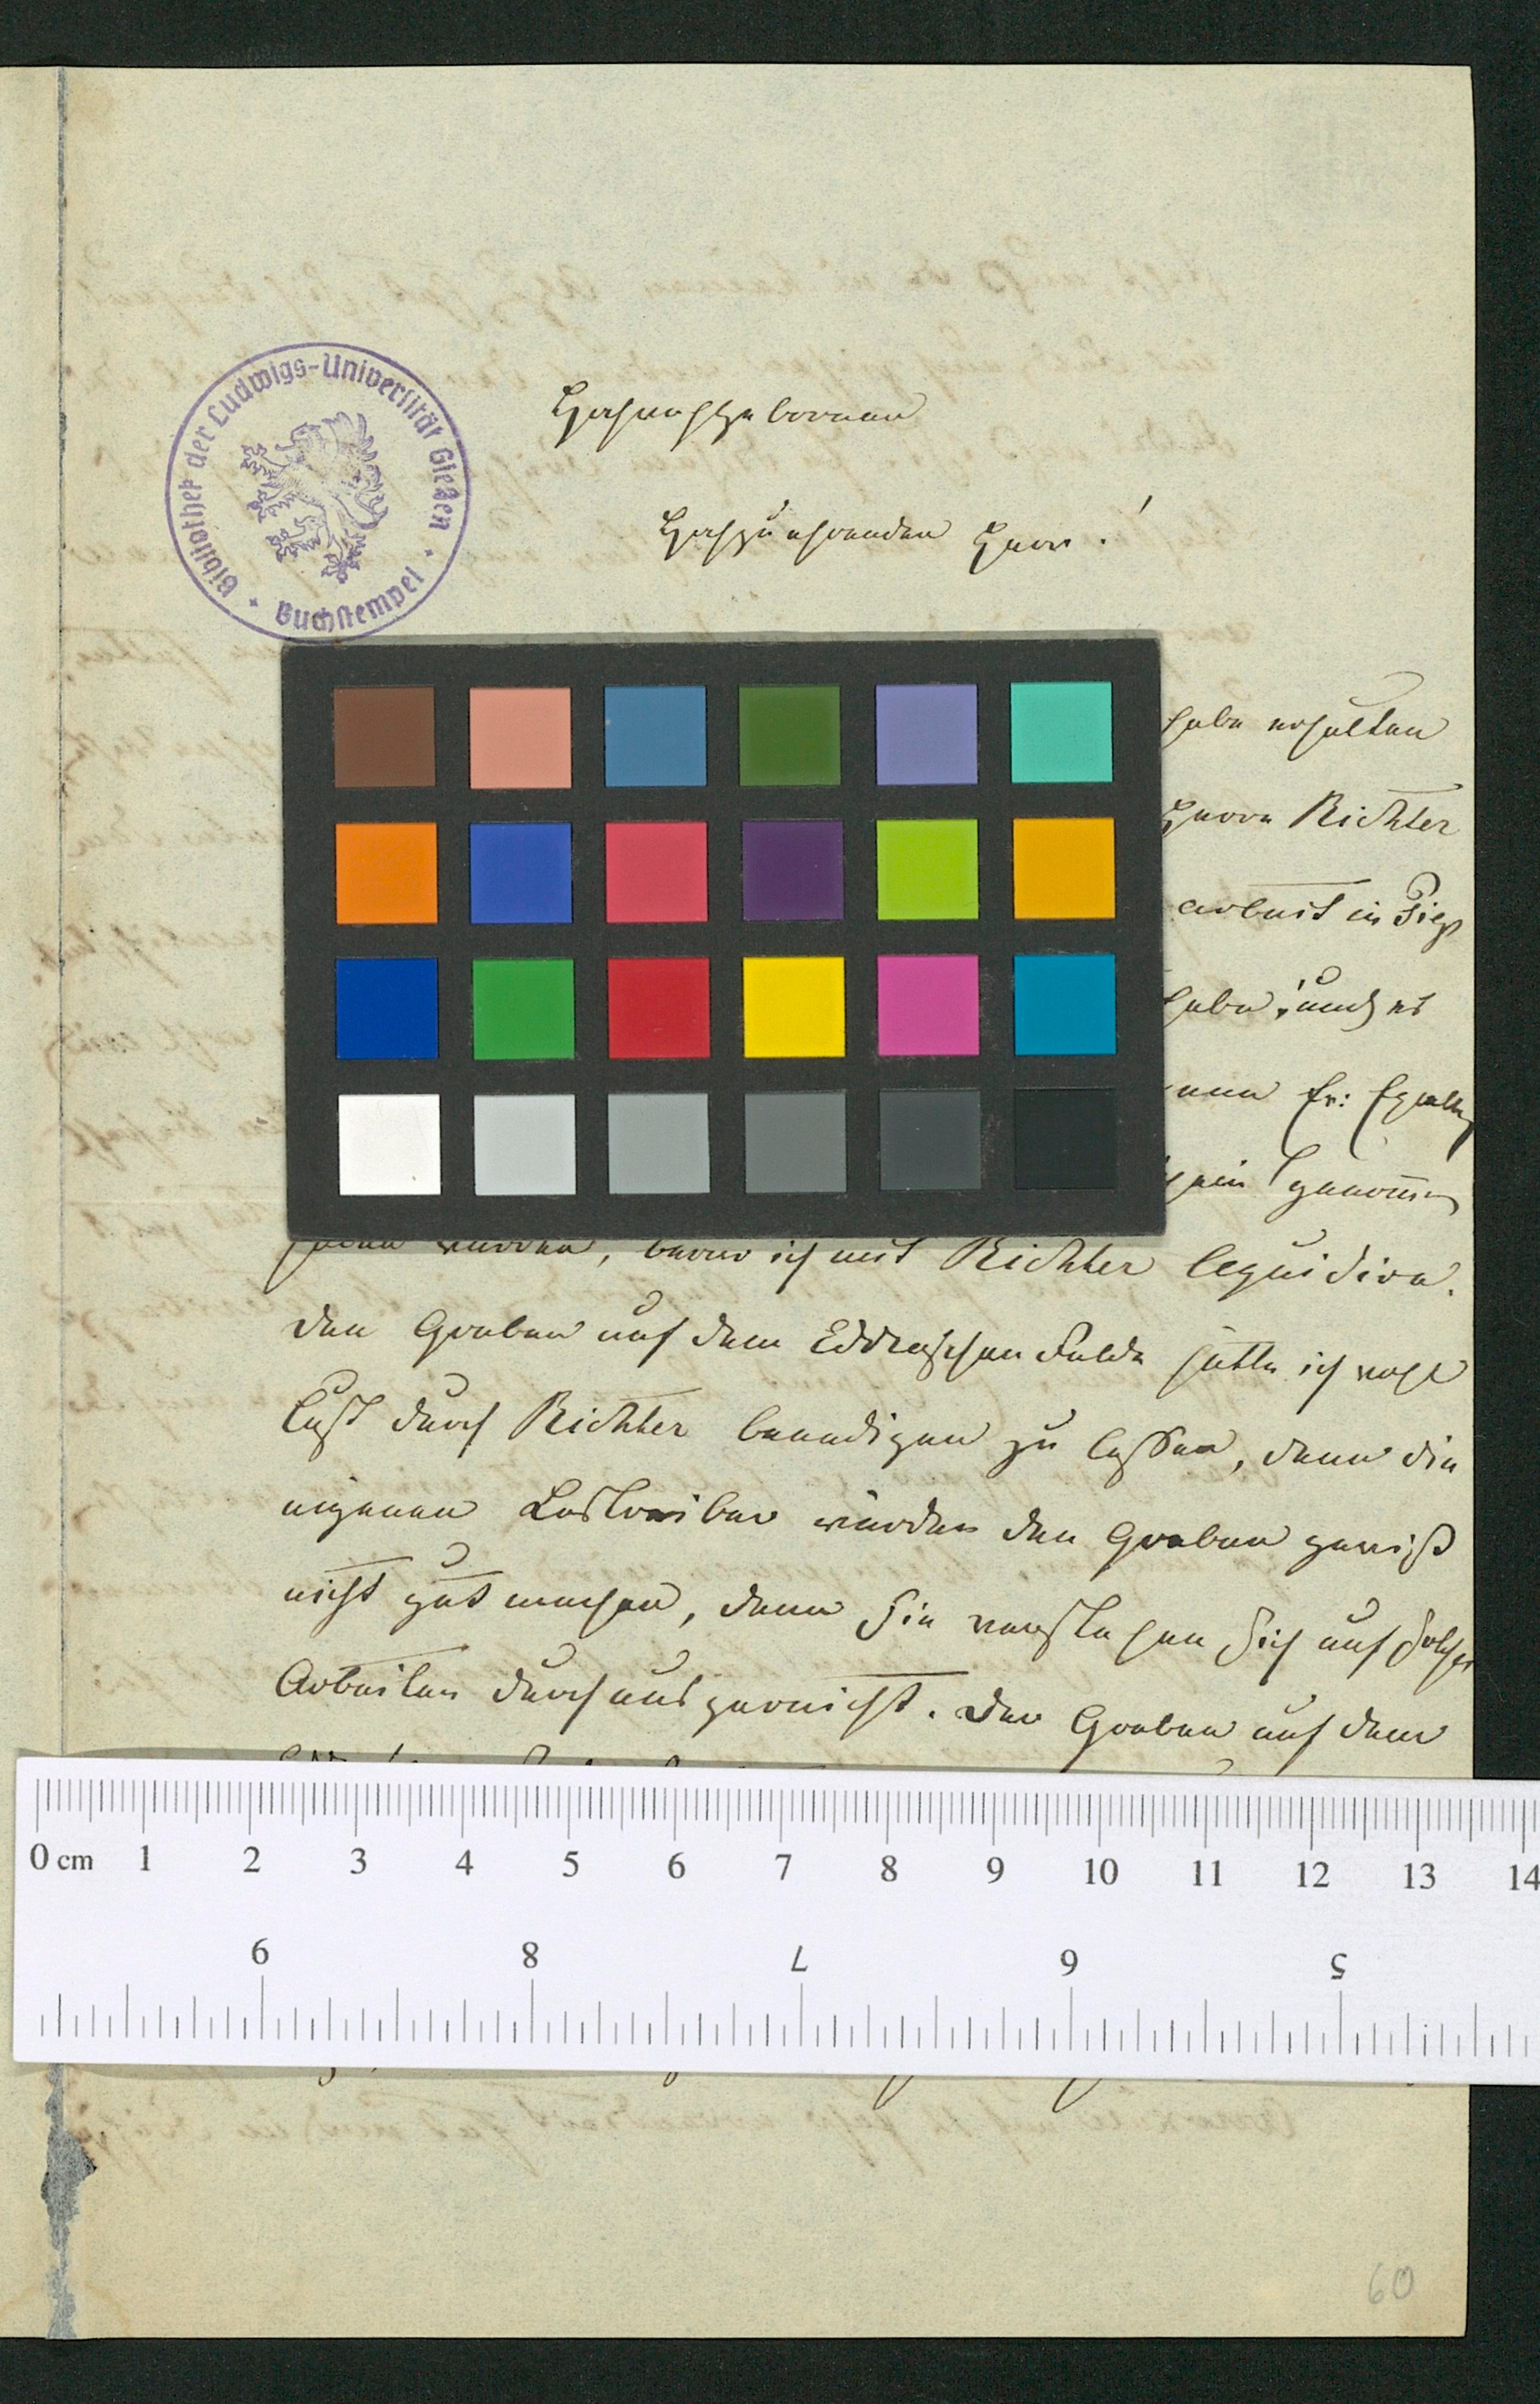 Bibliothek der Ludwigs-Universität Gießen
Buchstempel
Hochwohlgebornen
Hochzuehrender Herr!
habe erhalten
Herrn Richter
arbeit in
habe, und es
sein genom̄en
werden, bevor ich mit Richter liquidire.
Den Graben auf dem Felde hätte ich wohl
Lust durch Richter beendigen zu lassen, denn die
eigenen würden den Graben gewiß
nicht gut machen, denn sie verstehen sich auf solche
Arbeiten durchaus garnicht. Der Graben auf dem
0 cm 1 2 3 4 5 6 7 8 9 10 11 12 13 14
9 8 7 6 5
60